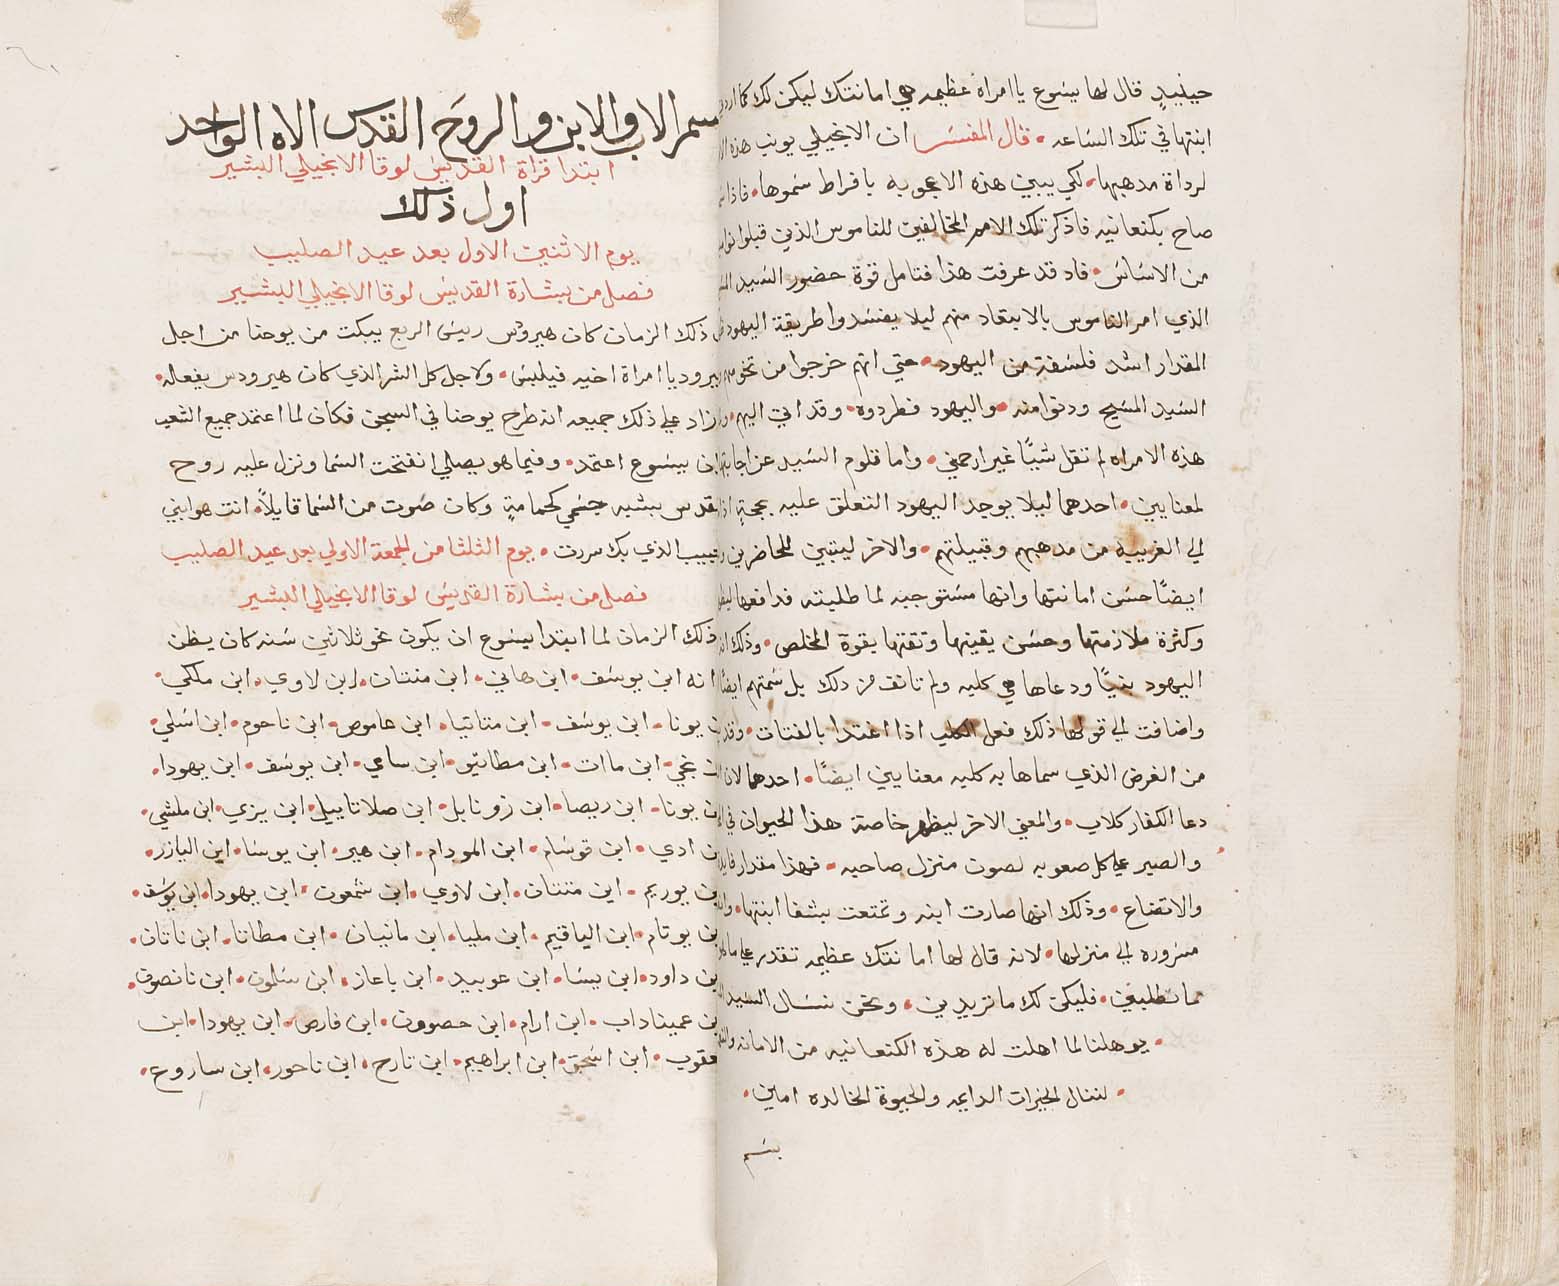 حينيدٍ قال لها يسوع يا امراة عظيمه هي امانتك ليكن لك كما اردتي
ابنتها في تلك الساعه • قال المفسر ان الانجيلي يونب هذه
لرداة مدهبها • لكي يبين هذه الاعجوبه بافراط سموها • فاذا
صاح بكنعانيه فاذكر تلك الامم المخالفين للناموس الذين قبلوا
من الاساس • فاد قد عرفت هذا فتامل قوة حضور السيد
الذي امر الناموس بالابتعاد منهم ليلا يفسدوا طريقة اليهود
المقدار اشد فلسفة من اليهود • حتي انهم خرجوا من تخومهم
السيد المسيح ودنوا منه • واليهود فطردوه • وقد اتي اليهم •
هذه الامراه لم تقل شيًا غير ارحمني • واما قلوم السيد عن اجابتها
لمعنايين • احدهما ليلا يوجد اليهود التعلق عليه بحجةٍ
الي الغريبيه من مدهبهم وقبيلتهم • والاخر ليتبين للحاضرين
ايضًا حسن امانتها وانها مستوجبه لما طلبته فدافعها
وكثرة ملازمتها وحسن يقينها وثقتها بقوة المخلص • وذلك
اليهود بنيًا ودعاها هي كلبه ولم تانف من دلك بل سمتهم ايضًا
واضافت الي قولها ذلك فعل الكلب اذا اغتدا بالفتات •
من الغرض الذي سماها به كلبه معنايين ايضًا • احدهما لان
دعا الكفار كلاب • والمعني الاخر ليظهر خاصة هذا الحيوان في
والصبر علي كل صعوبه لصوت منزل صاحبه • فهذا مقدار
والاتضاع • وذلك انها صارت ابنه وتمتعت بشفا ابنتها •
مسروره الي منزلها • لانه قال لها امانتك عظيمه تقدر علي
ما تطلبين • فليكن لك ما تريدين • ونحن نسال السيد
• يوهلنا لما اهلت له هذه الكنعانيه من الامانه
• لننال الخيرات الدايمه والحيوة الخالده امين •
بسم
بسم الاب والابن والروح القدس الاه الواحد
ابتدا قراة القديس لوقا الانجيلي البشير
اول ذلك
يوم الاثنين الاول بعد عيد الصليب
فصل من بشارة القديس لوقا الانجيلي البشير
ذلك الزمان كان هيرودس رييس الربع يبكت من يوحنا من اجل
هيروديا امراة اخيه فيلبس • ولاجل كل الشر الذي كان هيرودس يفعله •
وزاد علي ذلك جميعه انه طرح يوحنا في السجن فكان لما اعتمد جميع الشعب
ان يسوع اعتمد • وفيما هو يصلي انفتحت السما ونزل عليه روح
القدس بشبه جسمي كحمامةٍ وكان صوت من السما قايلاً • انت هو ابني
الحبيب الذي بك سررت • يوم الثلثا من الجمعة الاولي بعد عيد الصليب
فصل من بشارة القديس لوقا الانجيلي البشير
ذلك الزمان لما ابتدا يسوع ان يكون نحو ثلاثين سنه كان يظن
انه ابن يوسف • ابن هاني • ابن متتان • ابن لاوي • ابن ملكي •
بن يونا • ابن يوسف • ابن متاتيا • ابن عاموص • ابن ناحوم • ابن اسلي •
ابن نجي • ابن ماات • ابن مطاتيو • ابن سامي • ابن يوسف • ابن يهودا •
بن يونا • ابن ريصا • ابن زونابل • ابن صلاتاييل • ابن يري • ابن ملشي •
بن ادي • ابن قوسام • ابن المودام • ابن هير • ابن يوسا • ابن اليازر •
بن يوريم • ابن متتان • ابن لاوي • ابن شمعون • ابن يهودا • ابن يوسف •
بن يوتام • ابن الياقيم • ابن مليا • ابن مانيان • ابن مطاتا • ابن ناتان •
بن داود • ابن يسا • ابن عوبيد • ابن باعاز • ابن سلمون • ابن نانصون •
بن عميناداب • ابن ارام • ابن حصرون • ابن فارص • ابن يهودا • ابن
يعقوب • ابن اسحق • ابن ابراهيم • ابن تارح • ابن ناحور • ابن ساروح •